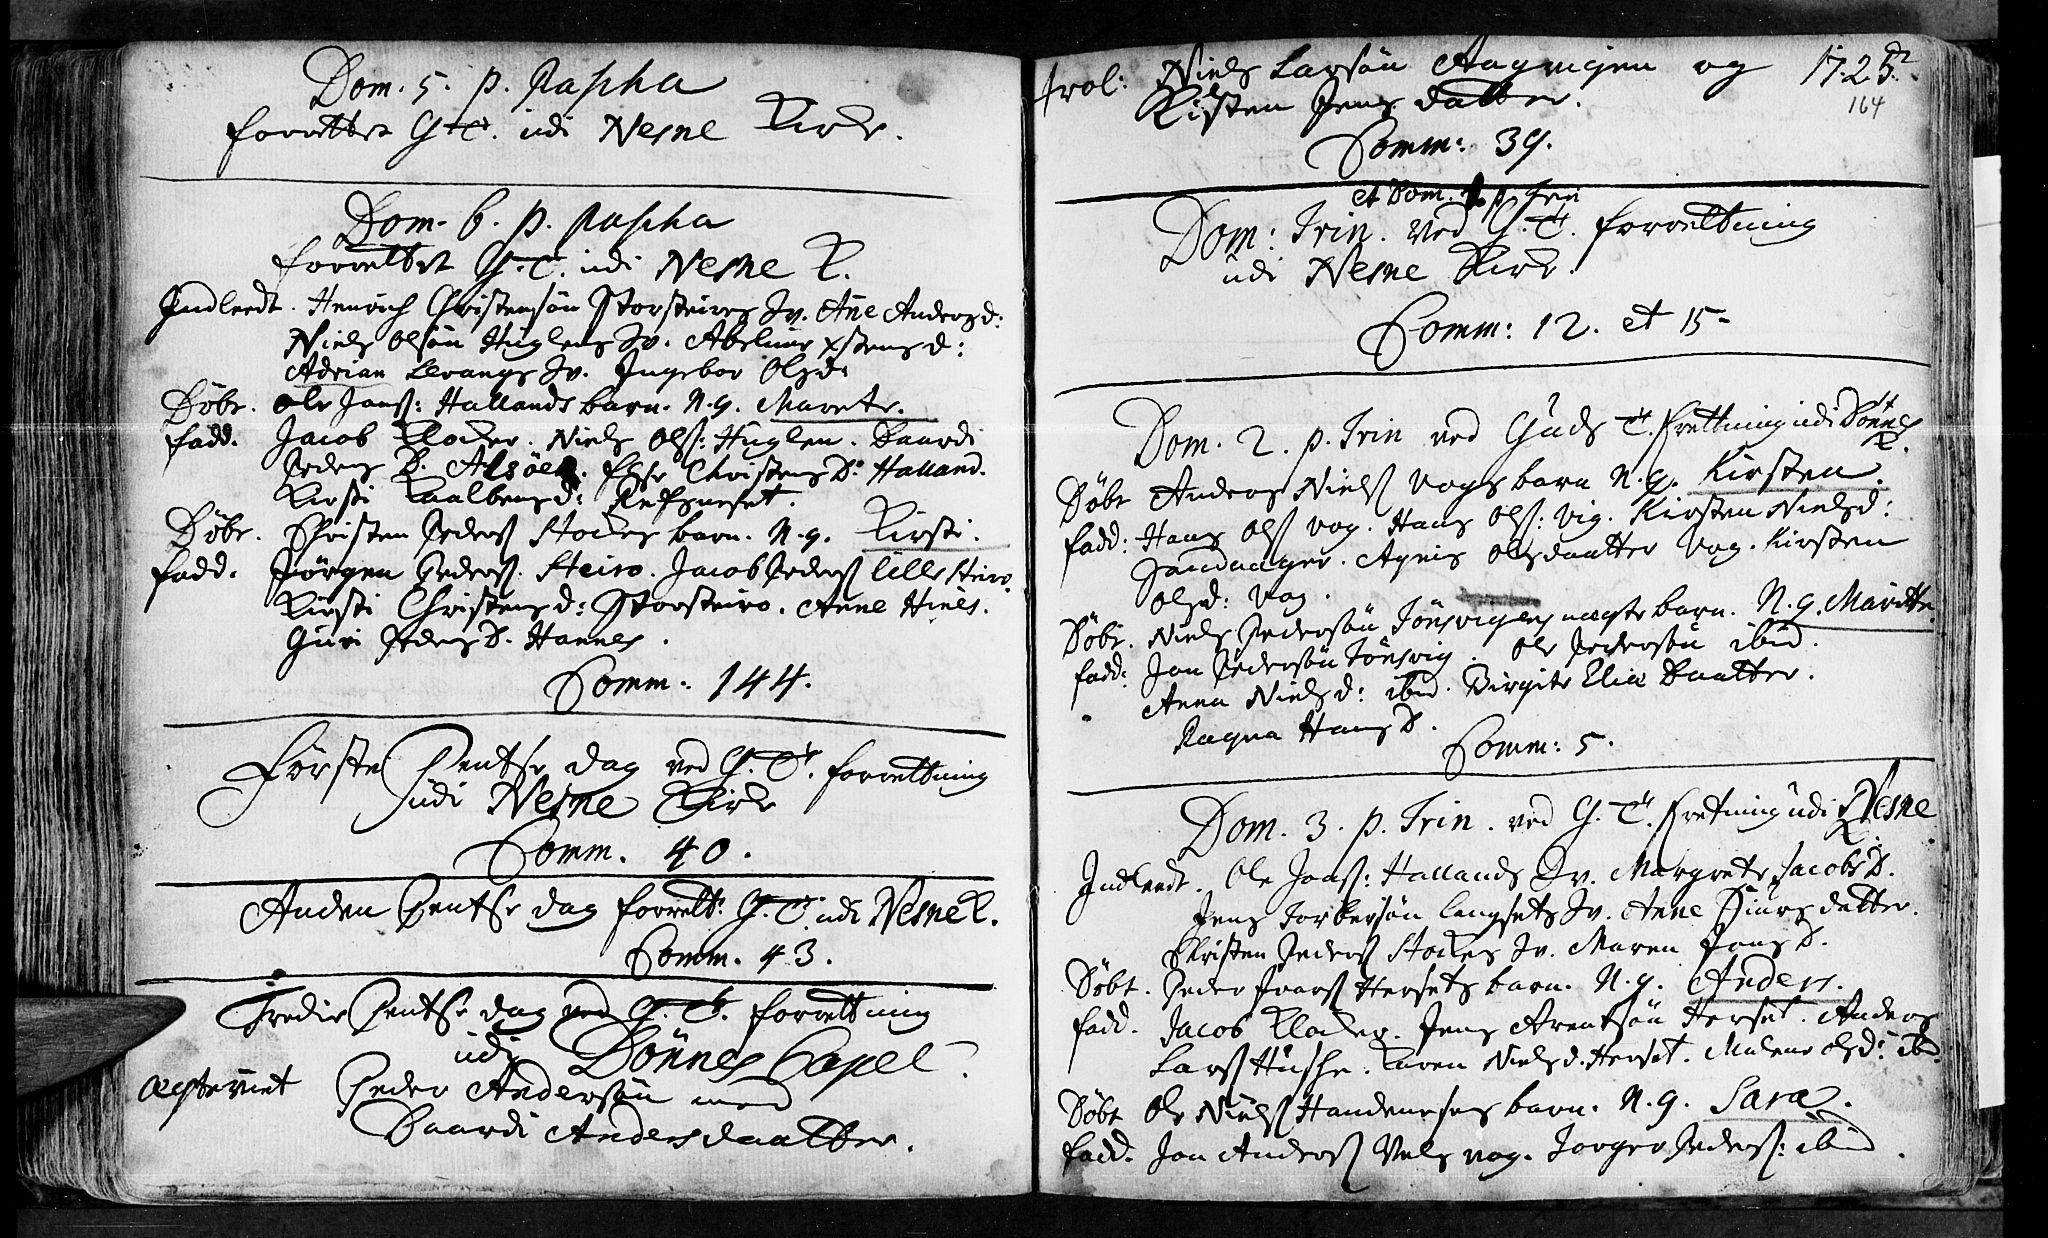 Dom. 5. p. Pascha
forrettet G. T. udi Nesne Kirke.
Dom. 6. p. Pascha
forrettet G. T. udi Nesne K.
Indleedt. Henrich Christensøn Storsteires Qv. Ane Andersd:
Niels Olsøn Huglens Qv. Abelone d:
Adrian Levangs Qv. Ingebor Olsd:
Døbt. Ole Jonss: Hallands barn. N. g. Marete.
fadd. Jacob Klocker. Niels Olss: Huglen. Baardi
Peders D. Alsøen. Christens D: Halland.
Kirsti d: Refsneset.
Døbt. Christen Peders Stockes barn. N. g. Kirsti.
fadd. Jørgen Peders. Steiro. Jacob Peders lille Steiro
Kirsti Christens d: Storsteiro. Anne Hines.
Guri Peders D. Hannes.
Comm. 144.
Første Pentse dag ved G. T. forrettning
udi Nesne Kirke
Comm. 40.
Anden Pentse dag forrett: G. T. udi Nesne K.
Comm. 43.
Tredie Pentse dag ved G. T. forrettning
udi Dønnes Capel
Ægteviet Peder Andersøn med
Baardi Andersdaatter.
trol: Niels Larsøn Aagvigen og 1725
Kisten Jensdatter.
164
Comm: 39.
et Dom. 1 p. Trin
Dom: Trin. ved G. T. forrettning
udi Nesne Kirke.
Comm: 12. et 15
Dom. 2. p. Trin ved Guds T. frettning udi Dønnes
K.
Døbt Anders Niels Vogs barn N. g. Kirsten.
fadd: Hans Ols vog. Hans Ols: Vig. Kirsten Nielsd:
Sandager. Agnis Olsdaatter Vog. Kirsten
Olsd: Vog.
Døbt. Niels Pedersøn Tønsvigens barn. N. g. Maritte.
fadd: Jon Pedersøn Tønsvig. Ole Pedersøn ibid.
Anna Niels d: ibid. Birgite Eliæ Daatter.
Ragna Hans D.
Comm: 5.
Dom. 3. p. Trin. ved G. T. frettning udi Nesne
K.
Indleedt. Ole Jonss: Hallands Qv. Margrete Jacobs D.
Jens Torbersøn Langsets Qv. Anne datter.
Christen Peders Stockes Qv. Maren Jons D.
Døbt. Peder Ivars Hersets barn. N. g. Anders.
fadd. Jacob Klocker. Jens Arentsøn Herset. Anders
Lars Husbye. Karen Niels d. Herset. Malene Olsd: ibid
Døbt Ole Niels Handnesens barn. N. g. Sara.
fadd. Jon Anders Vels vog. Torger Peders: ibid.